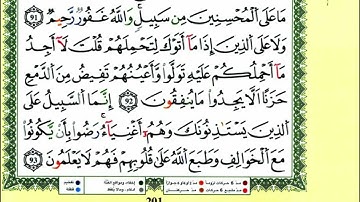 مَا عَلَى الْمُحْسِنِينَ مِن سَبِيلٍ ۚ وَاللَّهُ غَفُورٌ رَّحِيمٌ ﴿91﴾
وَلَا عَلَى الَّذِينَ إِذَا مَا أَتَوْكَ لِتَحْمِلَهُمْ قُلْتَ لَا أَجِدُ
مَا أَحْمِلُكُمْ عَلَيْهِ تَوَلَّوا وَّأَعْيُنُهُمْ تَفِيضُ مِنَ الدَّمْعِ
حَزَنًا أَلَّا يَجِدُوا مَا يُنفِقُونَ ﴿92﴾ ۞ إِنَّمَا السَّبِيلُ عَلَى
الَّذِينَ يَسْتَأْذِنُونَكَ وَهُمْ أَغْنِيَاءُ ۚ رَضُوا بِأَن يَكُونُوا
مَعَ الْخَوَالِفِ وَطَبَعَ اللَّهُ عَلَى قُلُوبِهِمْ فَهُمْ لَا يَعْلَمُونَ ﴿93﴾
201